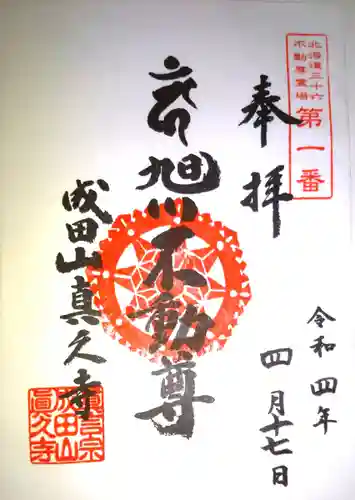 北海道三十六
不動尊霊場
第一番
奉拝
旭川不動尊
成田山真久寺
令和四年
四月十七日
真言宗
成田山
眞久寺